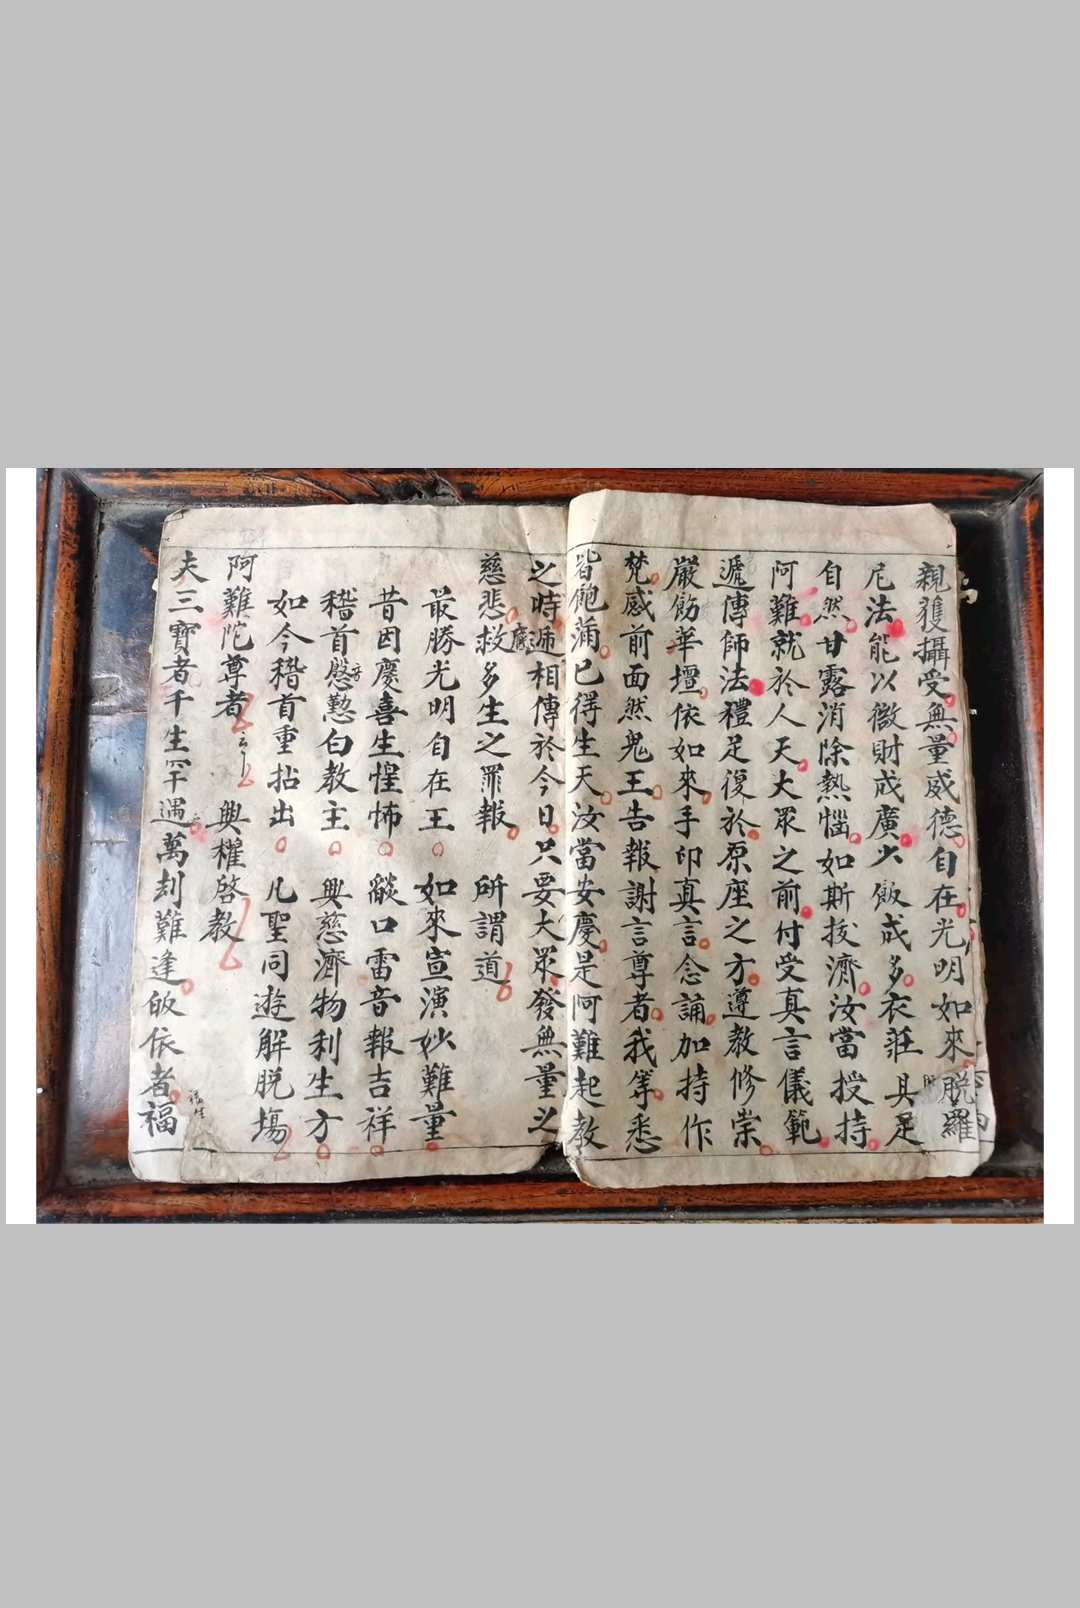 親獲攝受無量威德自在光明如來陀羅
尼法能以微財成廣少飯成多衣莊具足
自然甘露消除熱惱如斯拔濟汝當授持
阿難就於人天大眾之前付受真言儀範
遞傳師法禮足復於原座之方遵教修崇
嚴飭華壇依如來手印真言念誦加持作
梵感前面然鬼王告報謝言尊者我等悉
皆飽滿已得生天汝當安慶是阿難起教
之時遞相傳於今日只要大眾發無量之
慈悲救多生之罪報 所謂道
最勝光明自在王 如來宣演妙難量
昔因慶喜生惶怖 燄口雷音報吉祥
稽首慇懃白教主 興慈濟物利生方
如今稽首重拈出 凡聖同遊解脫場
阿難陀尊者 興權啓教
夫三寶者千生罕遇萬刦難逢皈依者福